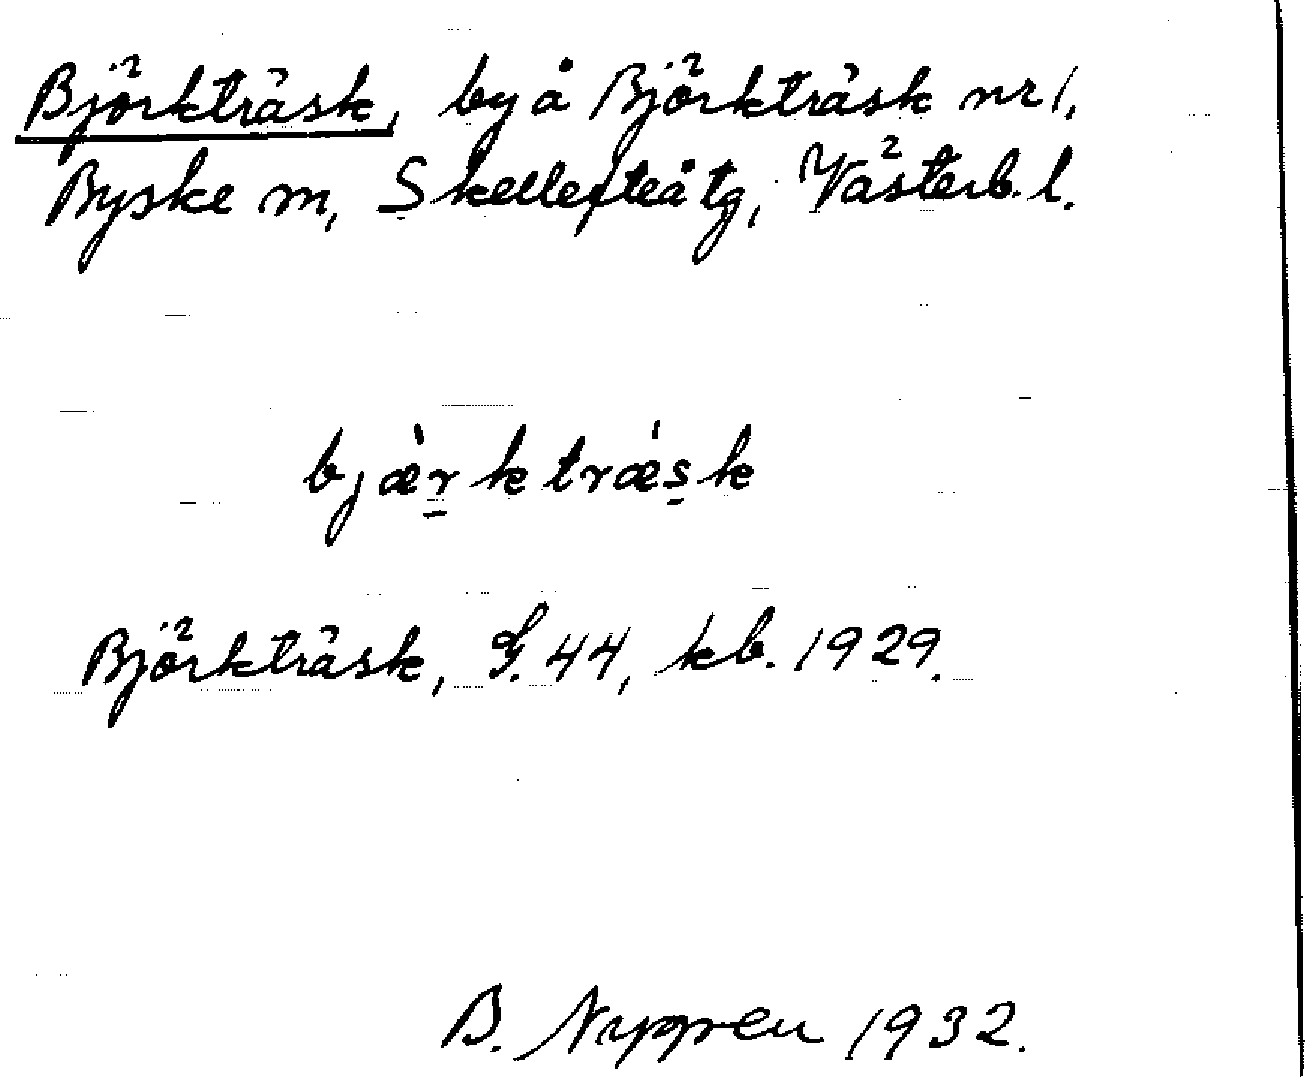 Björkträsk, by å Björkträsk nr 1,
Byske sn, Skellefteå tg, Västerb. l.
bjæ̀rktrǽsk
Björkträsk, G. 44, kb. 1929.
B. Nygren 1932.